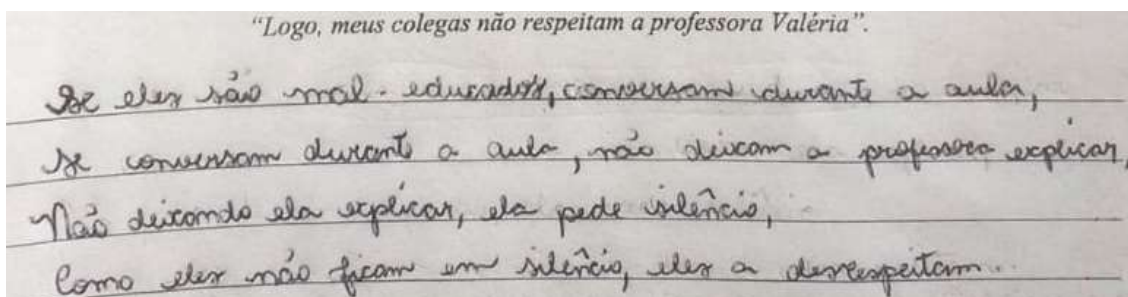 “Logo, meus colegas não respeitam a professora Valéria”.
Se eles são mal-educados, conversam durante a aula,
se conversam durante a aula, não deixam a professora explicar,
Não deixando ela explicar, ela pede silêncio,
Como eles não ficam em silêncio, eles a desrespeitam.